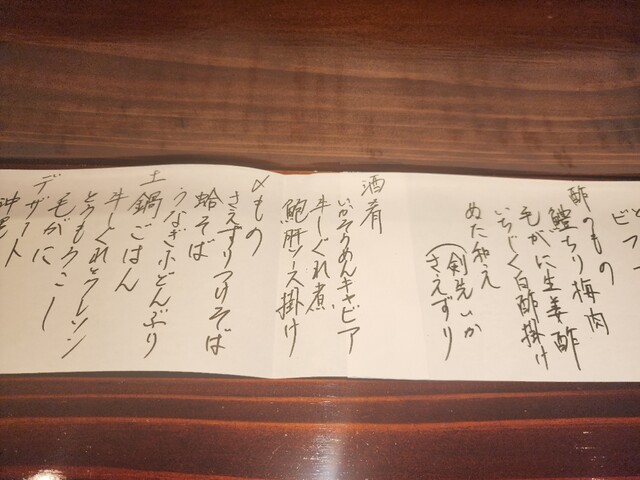 ビフ
酢のもの
鱧ちり梅肉
毛がに生姜酢
いちじく白酢掛け
ぬた和え
(剣先いか
さえずり
酒肴
いかそうめんキャビア
牛しぐれ煮
鮑肝ソース掛け
〆もの
さえずりつけそば
蛤そば
うなぎ小どんぶり
土鍋ごはん
牛しぐれとクレソン
とうもろこし
毛がに
デザート